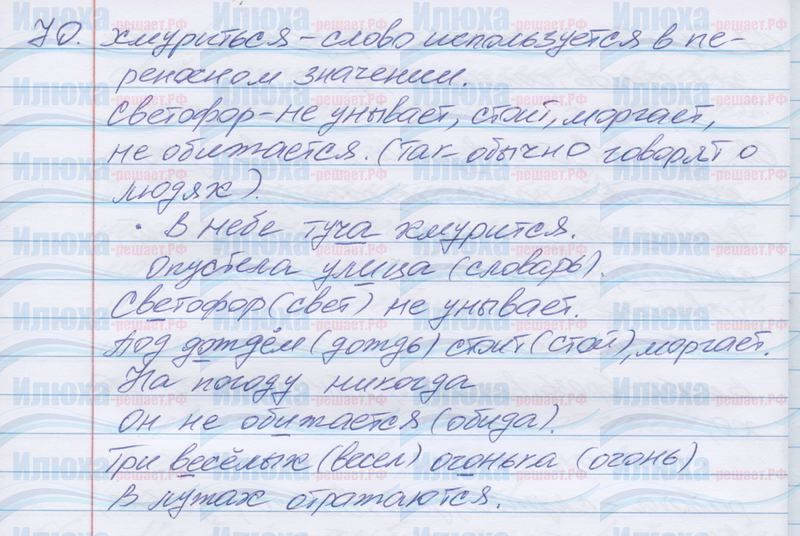 70. Хмуриться – слово используется в пе-
реносном значении.
Светофор – не унывает, стоит, моргает,
не обижается. (Так обычно говорят о
людях).
· В небе туча хмурится.
Опустела улица (словарь).
Светофор (свет) не унывает.
Под дождём (дождь) стоит (стой), моргает.
На погоду никогда
Он не обижается (обида).
Три весёлых (весел) огонька (огонь)
В лужах отражаются.
Илюха-решает.РФ